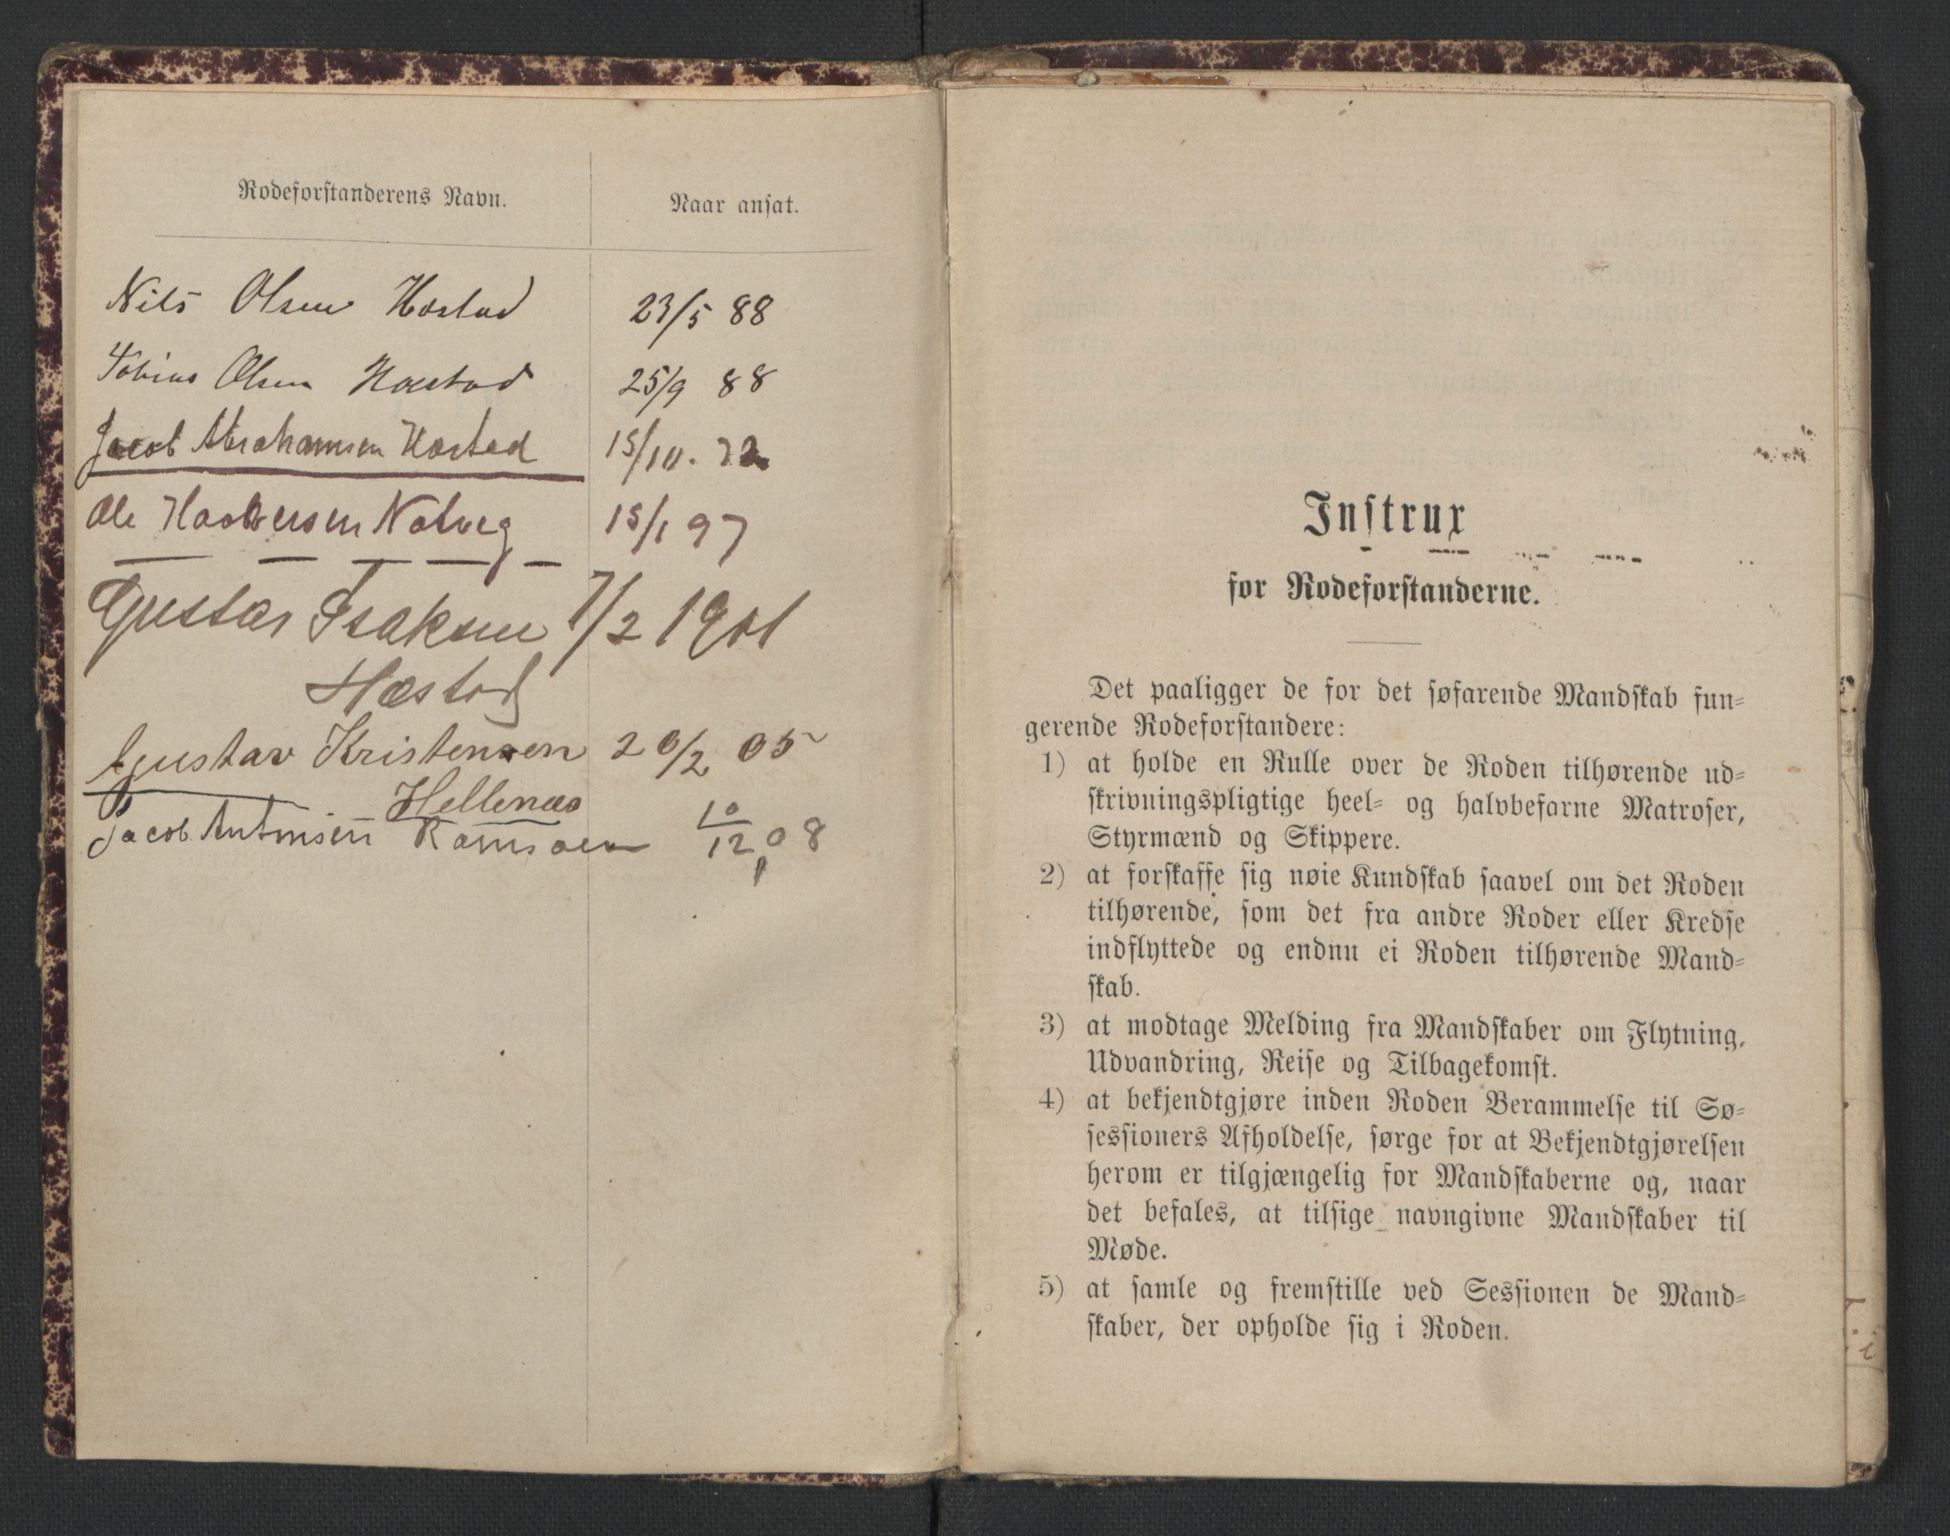 Rodeforstanderens Navn.
Naar ansat.
Nils Olsen Hæstad 23/5 88
Tobias Olsen Hæstad 25/9 88
Jacob Abrahamsen Hæstad 15/10.
Ole 15/1 97
Gustav Isaksen 7/2 1901
Hæstad
Gustav Kristensen 20/2 05
Hellenæs
Jacob Antonsen 10/12 08
Instrux
for Rodeforstanderne.
Det paaligger de for det søfarende Mandskab fun-
gerende Rodeforstandere:
1) at holde en Rulle over de Roden tilhørende ud-
skrivningspligtige heel- og halvbefarne Matroser,
Styrmænd og Skippere.
2) at forskaffe sig nøie Kundskab saavel om det Roden
tilhørende, som det fra andre Roder eller Kredse
indflyttede og endnu ei Roden tilhørende Mand-
skab.
3) at modtage Melding fra Mandskaber om Flytning,
Udvandring, Reise og Tilbagekomst.
4) at bekjendtgjøre inden Roden Berammelse til Sø-
sessioners Afholdelse, sørge for at Bekjendtgjørelsen
herom er tilgjængelig for Mandskaberne og, naar
det befales, at tilsige navngivne Mandskaber til
Møde.
5) at samle og fremstille ved Sessionen de Mand-
skaber, der opholde sig i Roden.